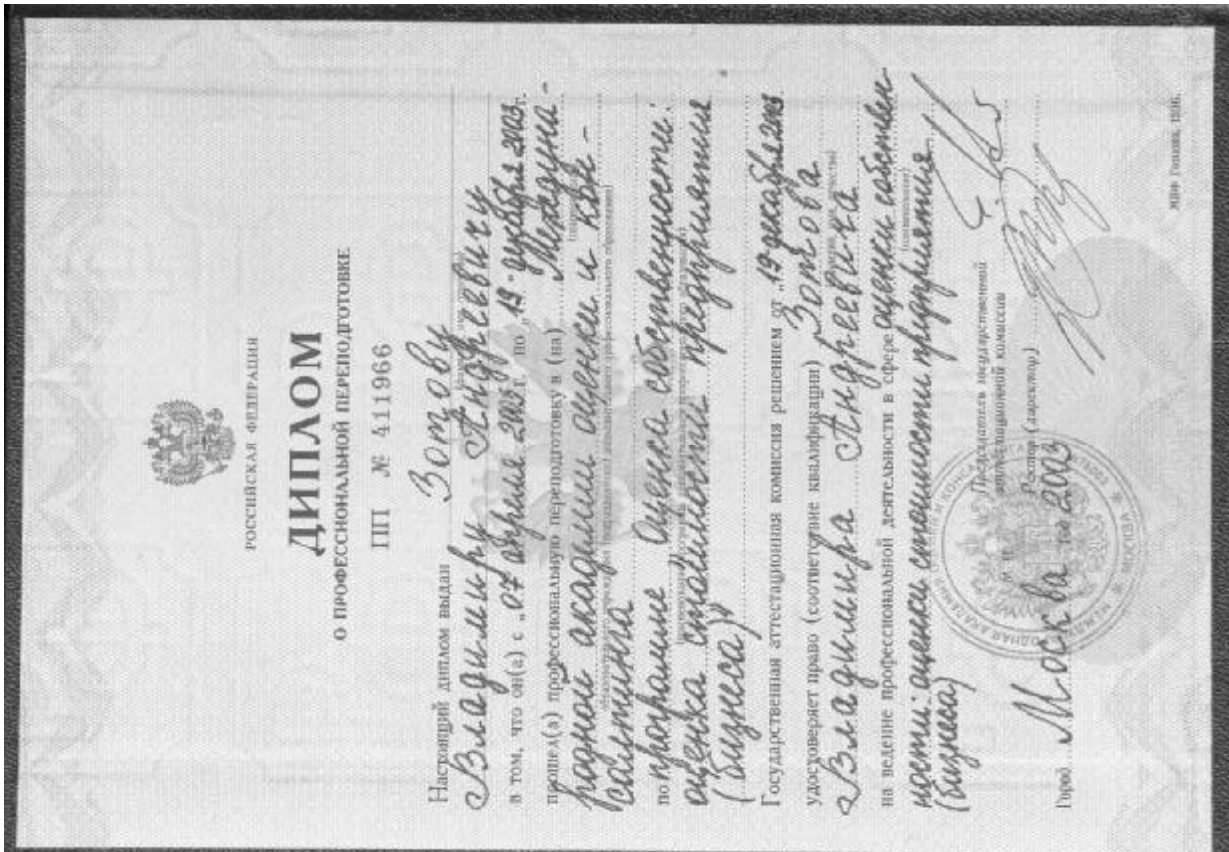 РОССИЙСКАЯ ФЕДЕРАЦИЯ
ДИПЛОМ
О ПРОФЕССИОНАЛЬНОЙ ПЕРЕПОДГОТОВКЕ
ПП № 411966
Настоящий диплом выдан Зотову
Владимиру Андреевичу
(фамилия, имя, отчество)
в том, что он(а) с „07 апреля 2003 г. по „19" декабря 2003 г.
прошел(а) профессиональную переподготовку в (на) Междуна-
родной академии оценки и кон-
салтинга
по программе „Оценка собственности:
оценка стоимости предприятия
(бизнеса)"
Государственная аттестационная комиссия решением от „19" декабря 2003
удостоверяет право (соответствие квалификации) Зотова
(фамилия, имя, отчество)
Владимира Андреевича
на ведение профессиональной деятельности в сфере оценки собствен
ности: оценки стоимости предприятия
(бизнеса)
Председатель государственной
аттестационной комиссии
Ректор (директор)
Город Москва 2003
МОСКВА